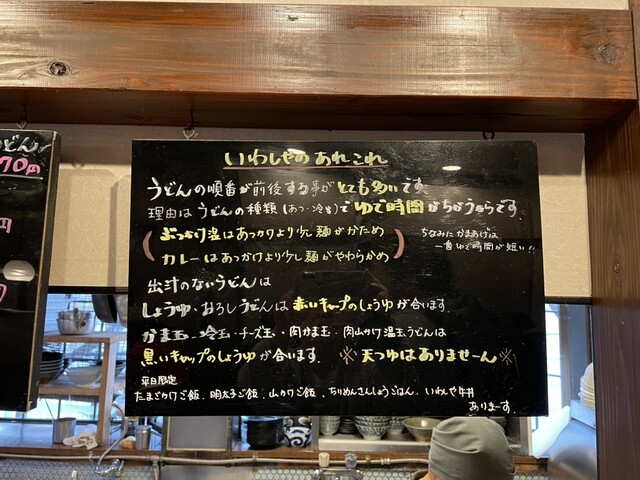 うどん
70円
円
いわしやのあれこれ
うどんの順番が前後する事がとても多いです。
理由はうどんの種類(あつ・冷など)でゆで時間がちがうからです。
ぶっかけ温はあつかけより少し麺がかため
カレーはあつかけより少し麺がやわらかめ
ちなみにかまあげは
一番ゆで時間が短い!!
出汁のないうどんは
しょうゆ・おろしうどんは赤いキャップのしょうゆが合います。
かま玉・冷玉・チーズ玉・肉かま玉・肉山かけ温玉うどんは
黒いキャップのしょうゆが合います。 ※天つゆはありませーん※
平日限定
たまごかけご飯、明太子ご飯、山かけご飯、ちりめんさんしょうごはん、いわしや牛丼
ありまーす